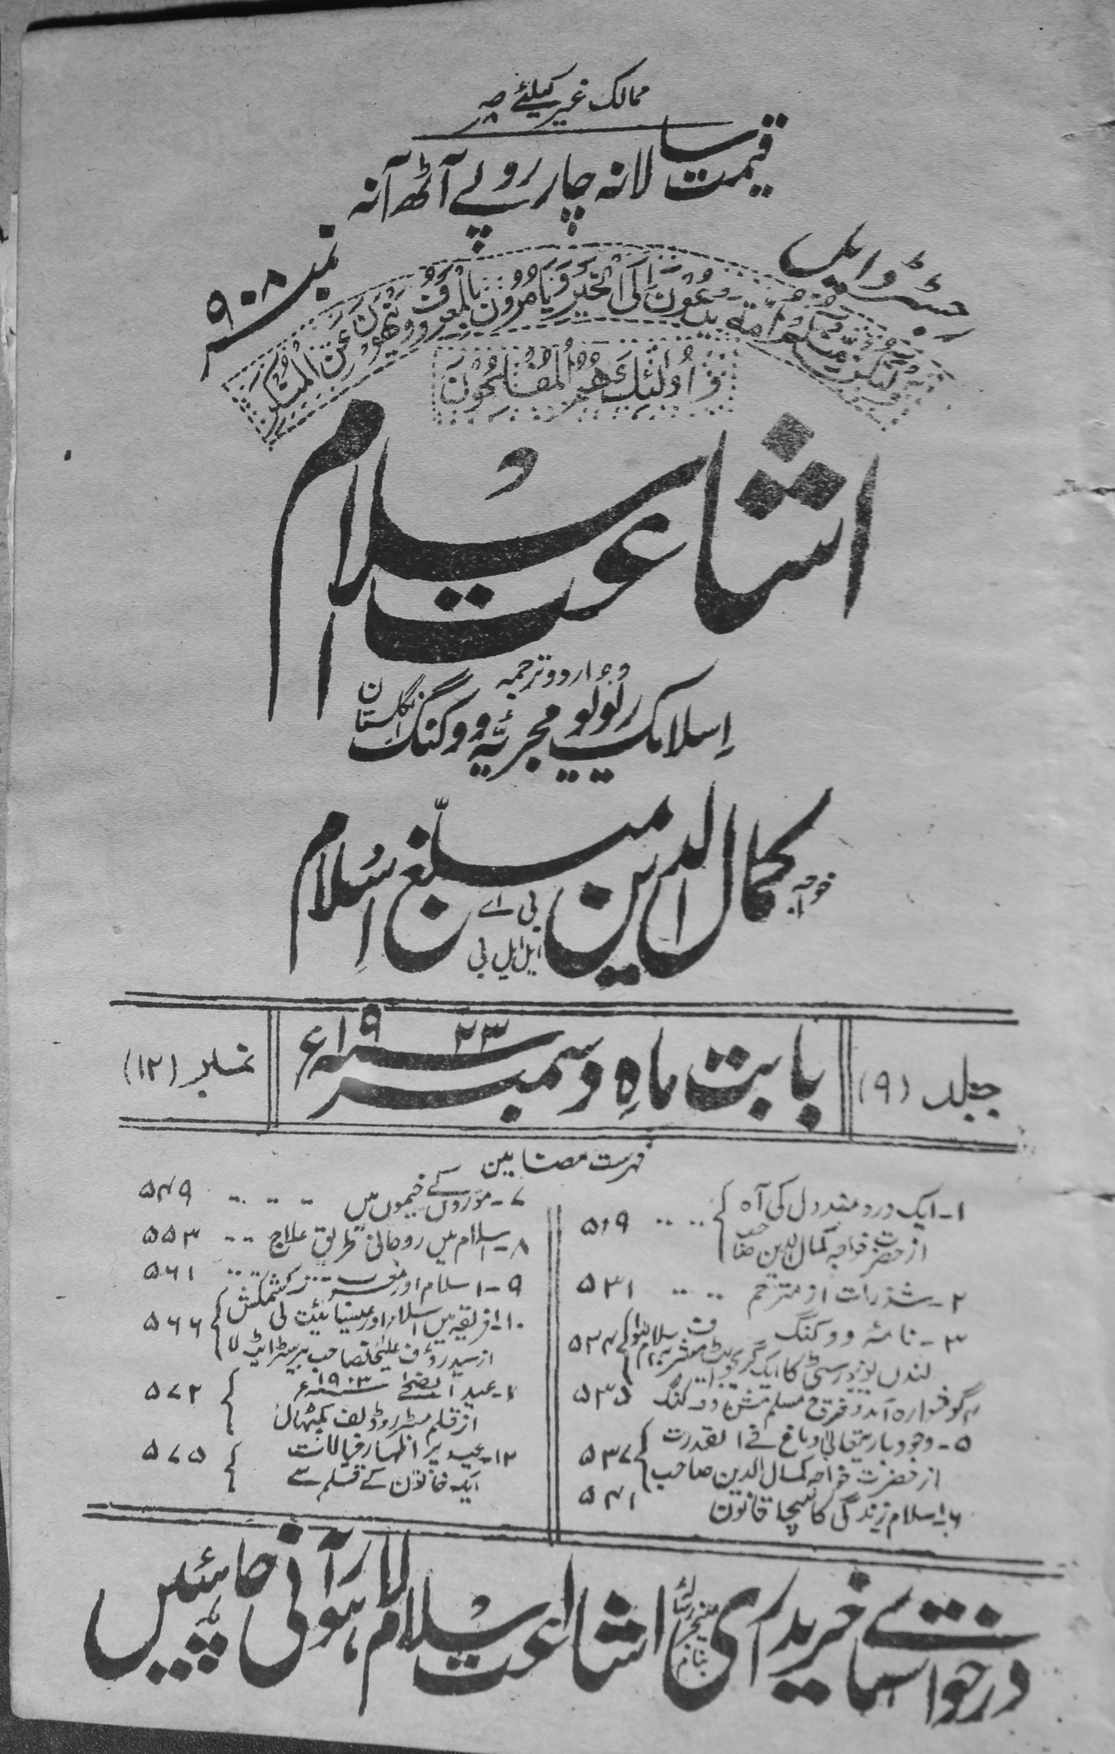 ممالک غیر کیلئے
قیمت سالانہ چار روپے آٹھ آنہ
رجسٹرڈ ایل نمبر ۹۰۸
ولتکن منکم امة یدعون الی الخیر ویامرون بالمعروف وینھون عن المنکر
وَاُولٰئِکَ ھُمُ الْمُفْلِحُوْنَ
اشاعت اسلام
اردو ترجمہ
اسلامک ریویو مجریہ ووکنگ انگلستان
خواجہ کمال الدین بی اے ایل ایل بی مبلّغ اسلام
جلد (۹)
بابت ماہ دسمبر ۱۹۲۳ء
نمبر (۱۲)
فہرست مضامین
۱- ایک درد مند دل کی آہ
از حضرت خواجہ کمال الدین صاحب ۵۱۹
۲- شذرات از مترجم ۵۳۱
۳- نامۂ ووکنگ
لندن یونیورسٹی کا ایک گریجویٹ ۵۳۴
۴- گوشوارہ آمد و خرچ مسلم مشن ووکنگ ۵۳۵
۵- وجود باریتعالیٰ
از حضرت خواجہ کمال الدین صاحب ۵۳۷
۶- اسلام زندگی کا سچا قانون ۵۴۱
۷- موروں کے خیموں میں ۵۴۹
۸- اسلام میں روحانی طریق علاج ۵۵۳
۹- اسلام اور ۵۶۱
۱۰- افریقہ میں اسلام اور عیسائیت کی کشمکش
از سید رؤف علی صاحب بیرسٹر ایٹ لا ۵۶۶
۱۱- عید الضحےٰ ۱۹۲۳ء
از قلم مسٹر روڈلف پکتھال ۵۷۲
۱۲- عید پر اظہار خیالات
ایک خاتون کے قلم سے ۵۷۵
درخواستہائے خریداری بنام منیجر رسالہ اشاعت اسلام لاہور آنی چاہئیں